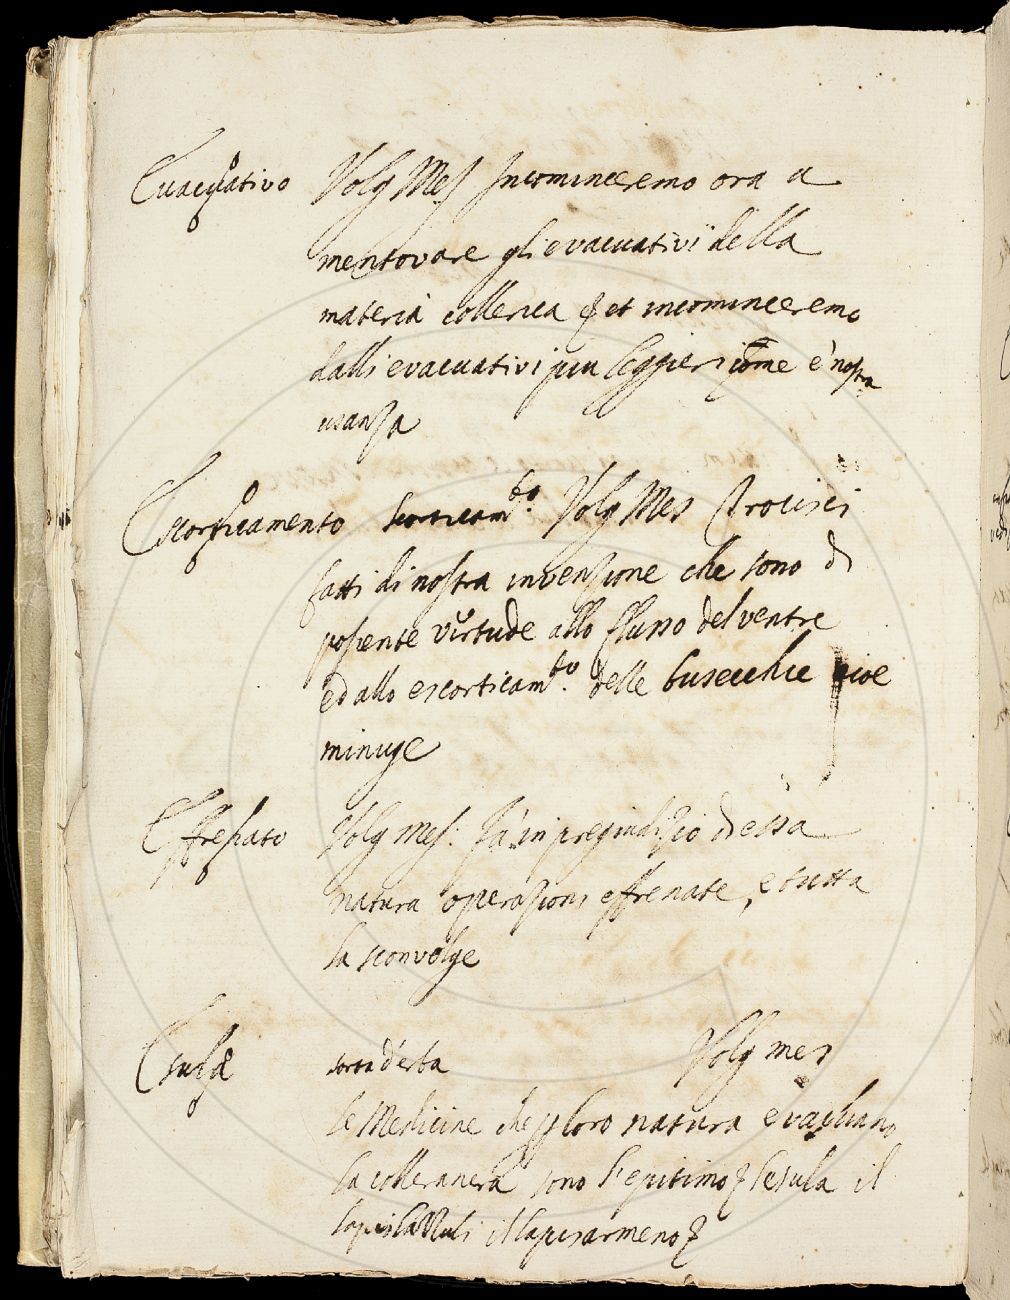 Evacuativo Volg Mes Incominceremo ora a
mentovare gli evacuativi della
materia collerica & et incominceremo
dalli evacuativi piu leggieri come è nostra
usanza
Escorticamento scorticam.to Volg Mes Trocisci
fatti di nostra invenzione che sono di
possente virtude allo flusso del ventre
ed allo escorticam.to delle busecchie cioe
minuge
Effrenato Volg Mes: Fa in pregiudizio d'essa
natura operazioni effrenate, e tutta
la sconvolge
Esula sorta d'erba Volg mes
le Medicine che p loro natura evacuano
la collera nera sono l'epitimo & l'esula il
lapislazzuli il lapis armeno &